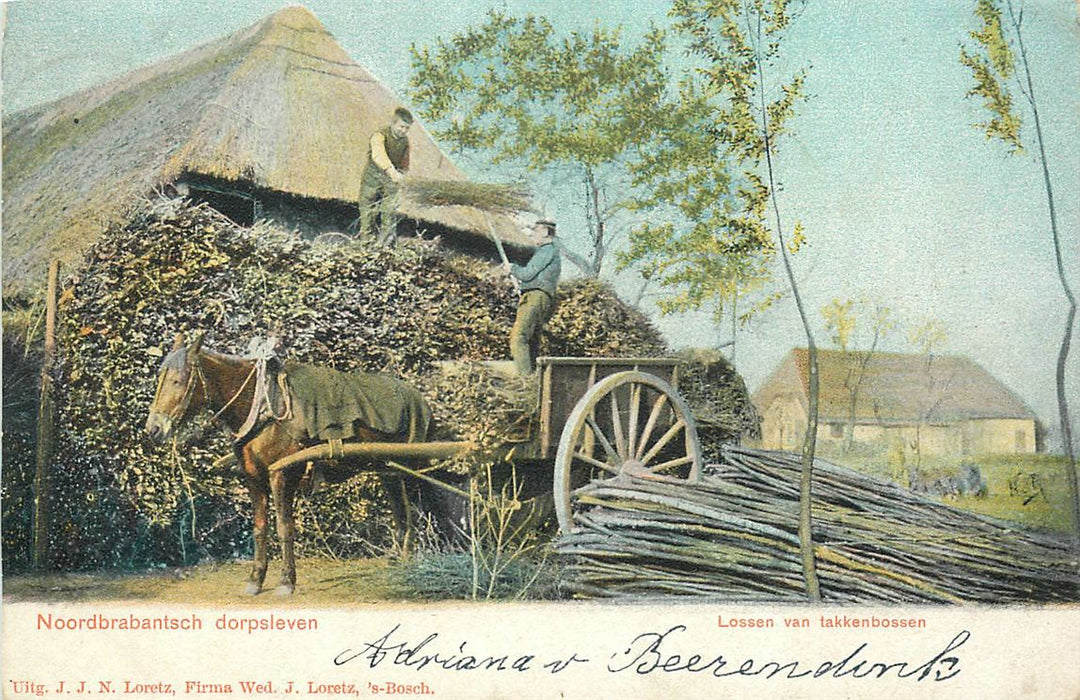 Noordbrabantsch dorpsleven
Lossen van takkenbossen
Adriana v Beerendonk
Uitg. J. J. N. Loretz, Firma Wed. J. Loretz, 's-Bosch.